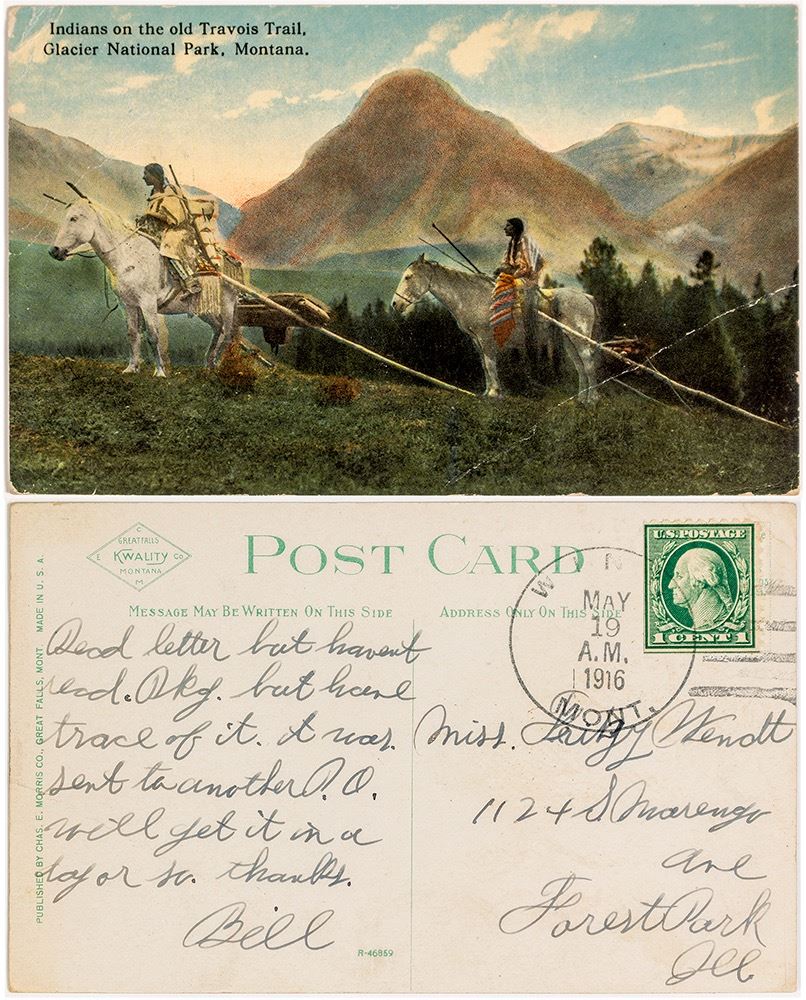 Indians on the old Travois Trail,
Glacier National Park, Montana.
C
GREAT FALLS
E KWALITY CO
MONTANA
M
POST CARD
MESSAGE MAY BE WRITTEN ON THIS SIDE
ADDRESS ONLY ON THIS SIDE
U.S. POSTAGE
1 CENT 1
W N
MAY
19
A.M.
1916
MONT.
PUBLISHED BY CHAS. E. MORRIS CO., GREAT FALLS, MONT. MADE IN U. S. A.
Recd letter but havent
recd. Pkg. but have
trace of it. it was.
sent to another P.O.
will get it in a
day or so. thanks.
Bill
R-46859
Miss. Wendt
1124 S Marengo
Ave
Forest Park
Ill